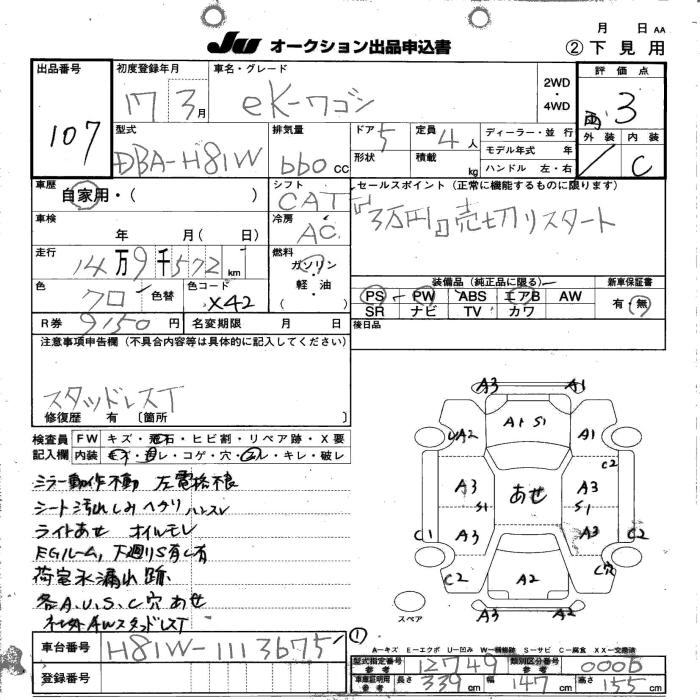 月 日 AA
JU オークション出品申込書 ②下見用
出品番号 107
初度登録年月 17 3月
車名・グレード eK-ワゴン
2WD・4WD
評価点 雨 3
型式 DBA-H81W
排気量 660 CC
ドア 5
形状
定員 4人
積載 kg
ディーラー・並行
モデル年式 年
ハンドル 左・右
外装 内装 C
車歴 自家用・( )
シフト CAT
セールスポイント(正常に機能するものに限ります)
3万円 売切リスタート
車検 年 月( 日)
冷房 AC
走行 14万9千572km
燃料 ガソリン・軽油・( )
色 クロ 色替
色コード X42
装備品(純正品に限る)
PS PW ABS エアB AW
SR ナビ TV カワ
新車保証書 有・無
R券 9150円
名変期限 月 日
後日品
注意事項申告欄(不具合内容等は具体的に記入してください)
スタッドレスT
修復歴 有 〔箇所 〕
検査員記入欄
FW キズ・飛石・ヒビ割・リペア跡・X要
内装 キズ・汚レ・コゲ・穴・スレ・キレ・破レ
ミラー動作不動 左電格不良
シート汚れしみ ヘタリ ハンスレ
ライトあせ オイルモレ
EGルーム、下廻りS有し有
荷室水漏れ跡
各A.U.S.C穴あせ
社外AWスタッドレスT
A3 A1
A1 S1
UA2 A1
C2
A3 あせ A3
S1 S1
C1 A3 A3 C2
C2 A2 C穴
A3 A3 C2
スペア
①
A-キズ E-エクボ U-凹み W-補修跡 S-サビ C-腐食 XX-交換済
車台番号 H81W-1113675
登録番号
型式指定番号 参考 12749
類別区分番号 参考 0006
車庫証明用 参考 長さ 339cm 幅 147cm 高さ 155cm